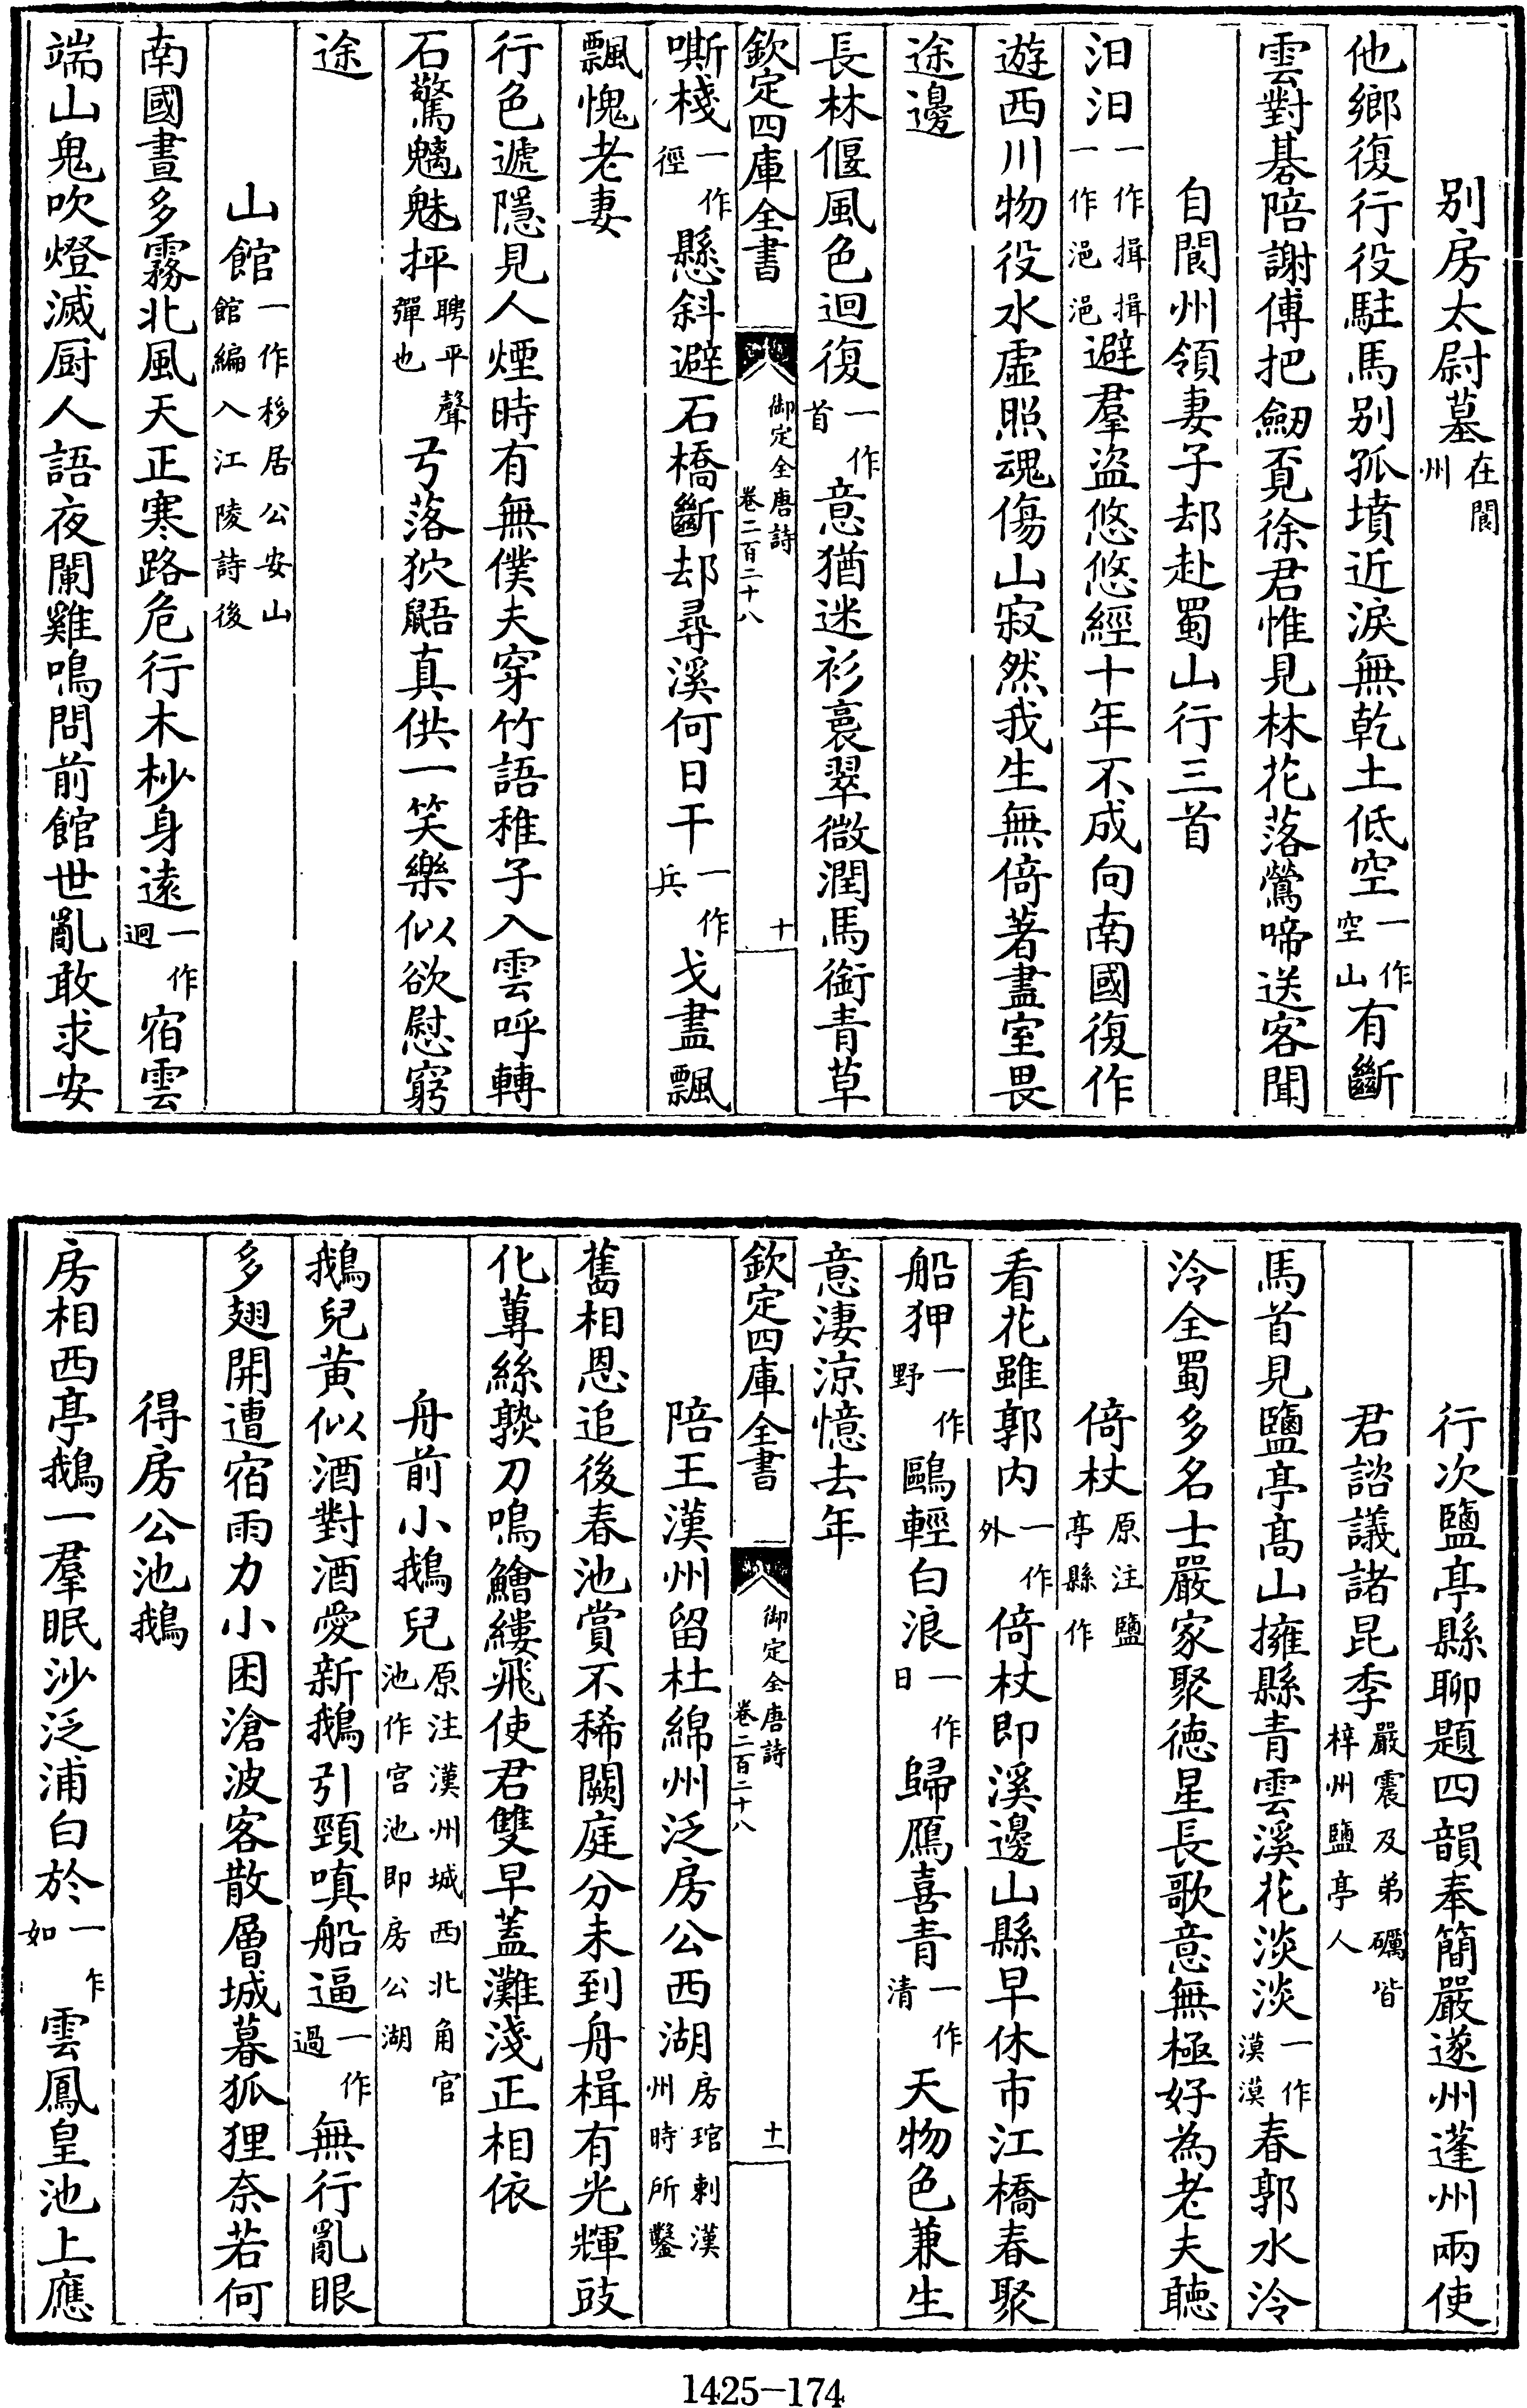 别房太尉墓在閬州
他鄉復行役駐馬别孤墳近淚無乾土低空一作空山有斷
雲對棊陪謝傅把劒覓徐君惟見林花落鶯啼送客聞
自閬州領妻子却赴蜀山行三首
汩汩一作揖揖一作浥浥避羣盜悠悠經十年不成向南國復作
遊西川物役水虚照魂傷山寂然我生無倚著盡室畏
途邊
長林偃風色迴復一作首意猶迷衫裛翠微潤馬銜青草
欽定四庫全書 御定全唐詩卷二百二十八 十
嘶棧一作徑懸斜避石橋斷却尋溪何日干一作兵戈盡飄
飄愧老妻
行色遞隱見人煙時有無僕夫穿竹語稚子入雲呼轉
石驚魑魅抨聘平聲彈也弓落狖鼯真供一笑樂似欲慰窮
途
山館一作移居公安山館編入江陵詩後
南國晝多霧北風天正寒路危行木杪身遠一作迥宿雲
端山鬼吹燈滅厨人語夜闌雞鳴問前館世亂敢求安
行次鹽亭縣聊題四韻奉簡嚴遂州蓬州兩使
君諮議諸昆季嚴震及弟礪皆梓州鹽亭人
馬首見鹽亭高山擁縣青雲溪花淡淡一作漠漠春郭水泠
泠全蜀多名士嚴家聚徳星長歌意無極好為老夫聴
倚杖原注鹽亭縣作
看花雖郭内一作外倚杖即溪邊山縣早休市江橋春聚
船狎一作野鷗輕白浪一作日歸鴈喜青一作清天物色兼生
意淒涼憶去年
欽定四庫全書 御定全唐詩卷二百二十八 十一
陪王漢州留杜綿州泛房公西湖房琯刺漢州時所鑿
舊相恩追後春池賞不稀闕庭分未到舟楫有光輝豉
化蓴絲熟刀鳴鱠縷飛使君雙早蓋灘淺正相依
舟前小鵝兒原注漢州城西北角官池作官池即房公湖
鵝兒黄似酒對酒愛新鵝引頸嗔船逼一作過無行亂眼
多翅開遭宿雨力小困滄波客散層城暮狐狸奈若何
得房公池鵝
房相西亭鵝一羣眠沙泛浦白於一作如雲鳳皇池上應
1425-174